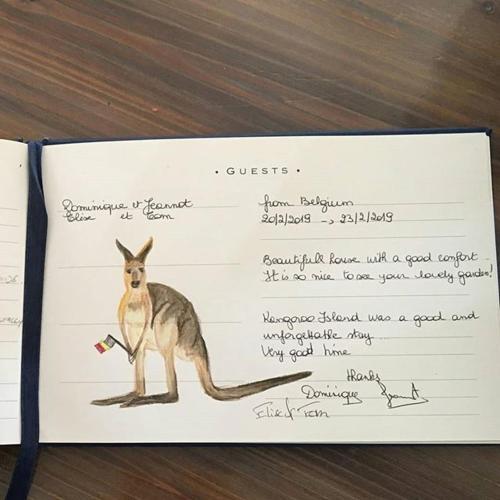 • GUESTS •
Dominique & Jeannot
Elise et Tom
from Belgium
20/2/2019 -, 23/2/2019
Beautifull house with a good confort
It is so nice to see your lovely garden!
Kangaroo Island was a good and
unforgettable stay...
Very good time
thanks
Dominique
Elise & Tom